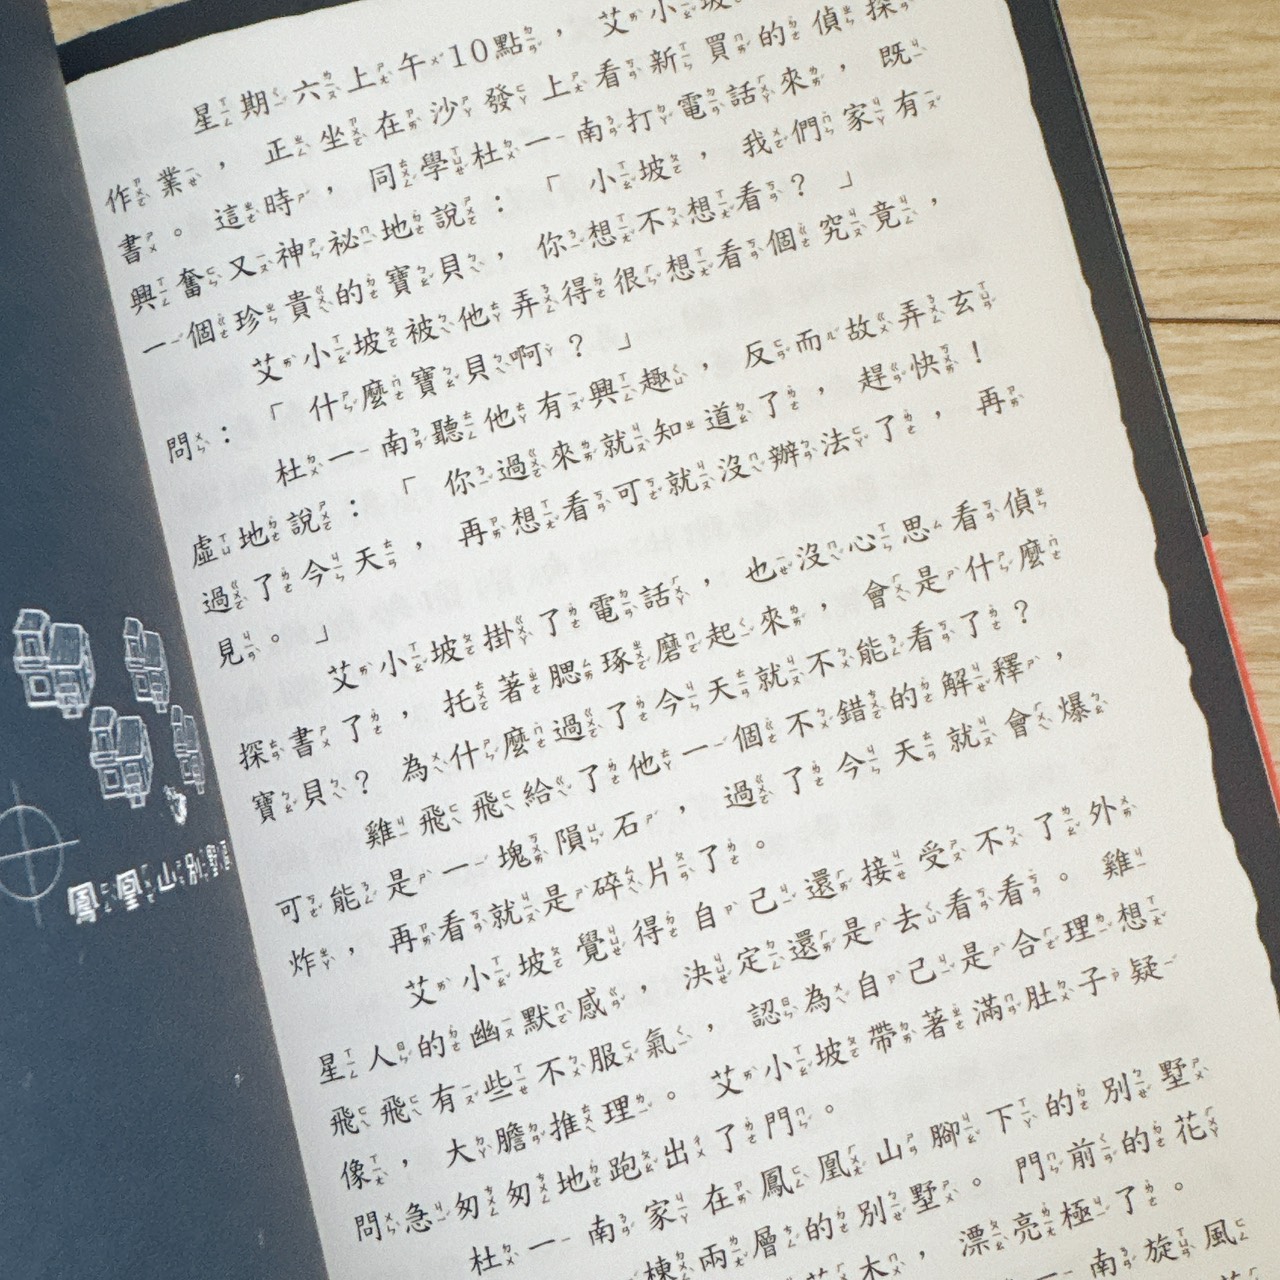 星期六上午10點，艾小坡
作業，正坐在沙發上看新買的偵探
書。這時，同學杜一南打電話來，既
興奮又神祕地說：「小坡，我們家有
一個珍貴的寶貝，你想不想看？」
艾小坡被他弄得很想看個究竟，
問：「什麼寶貝啊？」
杜一南聽他有興趣，反而故弄玄
虛地說：「你過來就知道了，趕快！
過了今天，再想看可就沒辦法了，再
見。」
艾小坡掛了電話，也沒心思看偵
探書了，托著腮琢磨起來，會是什麼
寶貝？為什麼過了今天就不能看了？
雞飛飛給了他一個不錯的解釋，
可能是一塊隕石，過了今天就會爆
炸，再看就是碎片了。
艾小坡覺得自己還接受不了外
星人的幽默感，決定還是去看看。雞
飛飛有些不服氣，認為自己是合理想
像，大膽推理。艾小坡帶著滿肚子疑
問急匆匆地跑出了門。
杜一南家在鳳凰山腳下的別墅
棟兩層的別墅。門前的花
木，漂亮極了。
一南旋風
鳳凰山別墅